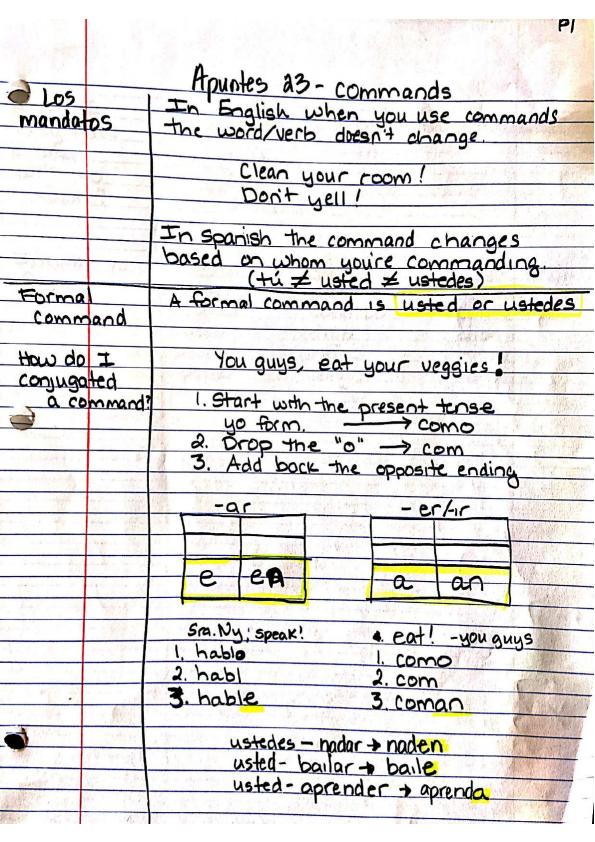 P1
Apuntes 23 - commands
Los mandatos
In English when you use commands
the word/verb doesn't change.
Clean your room!
Don't yell!
In spanish the command changes
based on whom you're commanding.
(tú ≠ usted ≠ ustedes)
Formal command
A formal command is usted or ustedes
How do I
conjugated
a command?
You guys, eat your veggies!
1. Start with the present tense
yo form. → como
2. Drop the "o" → com
3. Add back the opposite ending
-ar
e en
- er/-ir
a an
Sra. Ny, speak!
1. hablo
2. habl
3. hable
eat! - you guys
1. como
2. com
3. coman
ustedes - nadar → naden
usted - bailar → baile
usted - aprender → aprenda